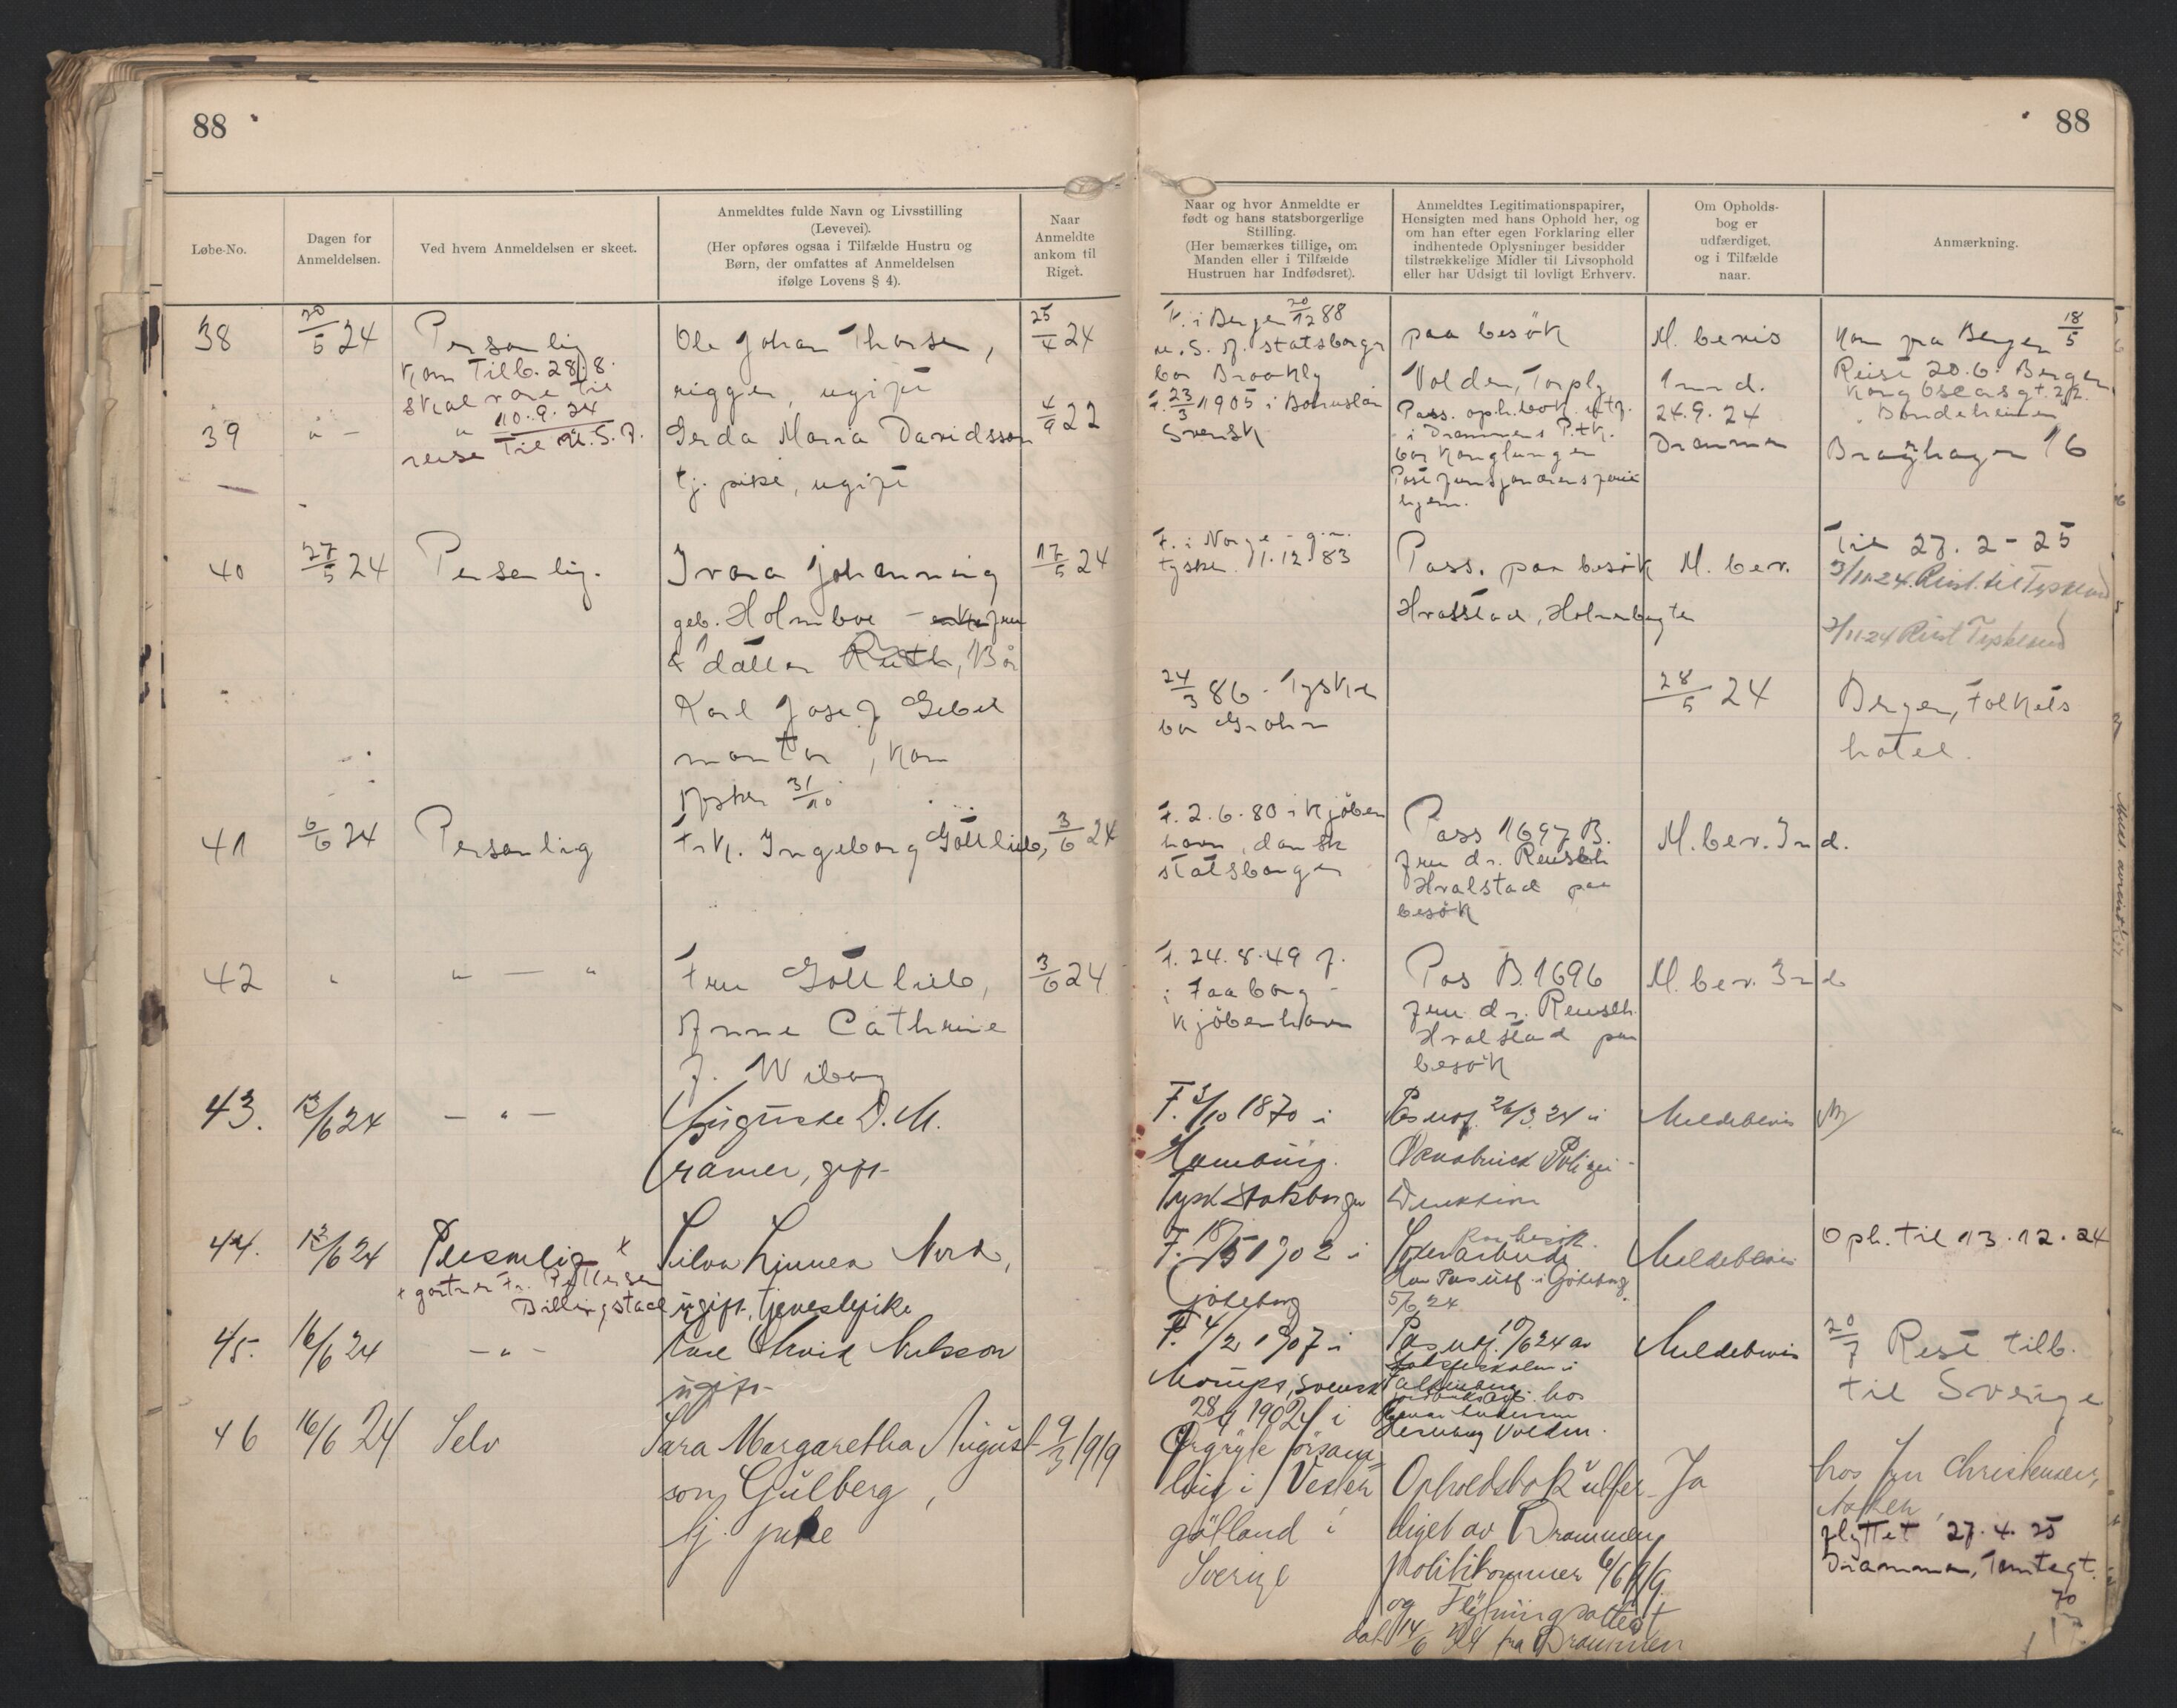 88
88
Løbe-No.
Dagen for
Anmeldelsen.
Ved hvem Anmeldelsen er skeet.
Anmeldtes fulde Navn og Livsstilling
(Levevei).
(Her opføres ogsaa i Tilfælde Hustru og
Børn, der omfattes af Anmeldelsen
ifølge Lovens § 4).
Naar
Anmeldte
ankom til
Riget.
Naar og hvor Anmeldte er
født og hans statsborgerlige
Stilling.
(Her bemærkes tillige, om
Manden eller i Tilfælde
Hustruen har Indfødsret).
Anmeldtes Legitimationspapirer,
Hensigten med hans Ophold her, og
om han efter egen Forklaring eller
indhentede Oplysninger besidder
tilstrækkelige Midler til Livsophold
eller har Udsigt til lovligt Erhverv.
Om Opholds-
bog er
udfærdiget,
og i Tilfælde
naar.
Anmærkning.
38
20/5 24
Personlig
Kom tilb. 28/8.
skal være til
10.9.24
reise til U.S.A.
Ole Johan Thorsen,
rigger, ugift
25/4 24
F. i Bergen 20/12 88
U.S.A. statsborger
bor Brooklyn
paa besök
Volden, Torply
M. bevis
1 mnd.
Kom fra Bergen 18/5
Reist 20.6. Bergen
Kong Oscasgt. 22.
Bondeheimen
39
" —
"
Gerda Maria Davidsson
tj. pike, ugift
4/9 22
F. 23/3 1905 i Bohuslän
Svensk
Pass. oph.bok utf.
i Drammens P.tk.
bor Konglungen
hjem.
24.9.24
Drammen
Braghagen 16
40
27/5 24
Personlig.
Ivara Johanning
geb. Holmboe - enke fru
& datter Ruth, 13 år
Karl Josef Gebel
montør, Kom
Asker 31/10
17/5 24
F. i Norge - g.m.
tysker. 11.12.83
24/3 86 - Tysker
bor Grohn
Pass. paa besøk
Hvalstad, Holmenbugten
M. bev.
28/5 24
Til 27.2-25
3/11 24. Reist til Tyskland
3/11-24 Reist Tyskland
Bergen, Folkets
hotel.
41
6/6 24
Personlig
Frk. Ingeborg Göttlieb,
3/6 24
F. 2.6.80 i Kjöben
havn, dansk
statsborger
Pass 1697 B.
fru dr. Reusch
Hvalstad paa
besök
M. bev. 3 md.
42
"
" — "
Fru Göttlieb,
Anne Cathrine
f. Wiborg
3/6 24
F. 24.8.49 f.
i Faaborg -
Kjöbenhavn
Pas B. 1696
fru dr. Reusch.
Hvalstad paa
besök
M. bev. 3 md
43.
13/6 24
— " —
Auguste D. M.
Cramer, gift
F. 3/10 1870 i
Hamburg.
Tysk statsborger
Pas utf. 26/3 24 i
Osnabrück Polizei-
Direktion
Meldebevis
44.
13/6 24
Personlig x
x gartner Fr. Pettersen
Billingstad
Silva Linnea Nord,
ugift, tjenestepike
F. 18/5 1902 i
Göteborg
paa besök.
Söker arbeide
Har Pas utf. i Göteborg
5/6 24
Meldebevis
Oph. til 13.12.24
45.
16/6 24
— " —
Karl Arvid Nilsson
ugift
F. 4/2 1907 i
Morups, svensk
Pas utf. 10/6 24 av
i
Falkenberg
hos
Volden.
Meldebevis
20/7 Rest tilb.
til Sverige
46
16/6 24
Selv
Sara Margaretha August-
son Gulberg,
tj. pike
9/3 1919
28/4 1902 i
Örgryte försam
ling i Vester
götland i
Sverige
Opholdsbok utfer
diget av Drammen
politikammer 6/6 19.
og Flytningsattest
dat 14/6 24 fra Drammen
Ja
hos fru Christensen,
Asker,
flyttet 27.4.25
Drammen, Tomtegt.
70